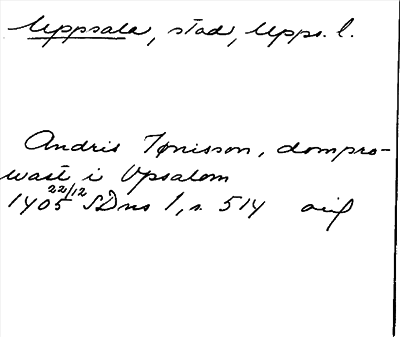 Uppsala, stad, Upps. l.
Andris Jønisson, dompro-
wast i Vpsalom
22/12
1405 SDns 1, s. 514 avskr